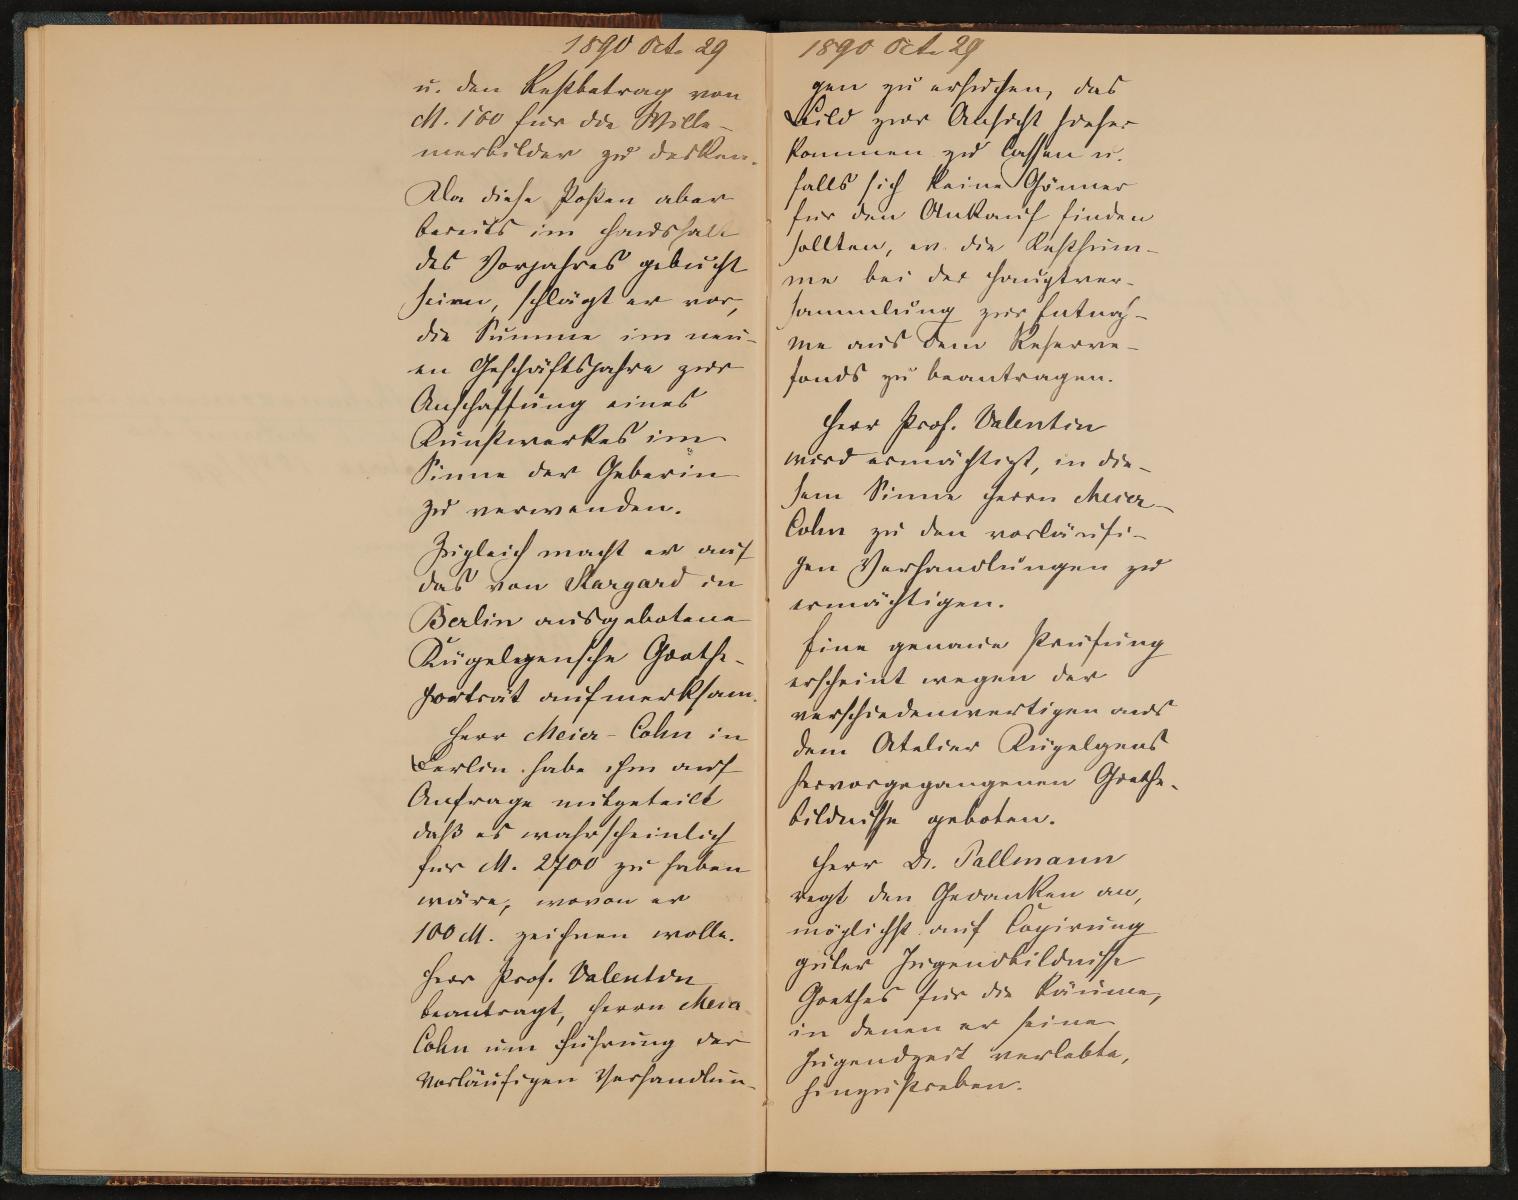 1890 Oct. 29
u. den Restbetrag von
M. 160 für die Wille-
merbilder zu decken.
Da diese Posten aber
bereits im Haushalt
des Vorjahres gebucht
seien, schlägt er vor,
die Summe im neu-
en Geschäftsjahre zur
Anschaffung eines
Kunstwerkes im
Sinne der Geberin
zu verwenden.
Zugleich macht er auf
das von Stargard in
Berlin ausgebotene
Kügelgensche Goethe-
porträt aufmerksam.
Herr Meier-Cohn in
Berlin habe ihm auf
Anfrage mitgeteilt
daß es wahrscheinlich
für M. 2700 zu haben
wäre, wovon er
100 M. zeichnen wolle.
Herr Prof. Valentin
beantragt, Herrn Meier
Cohn um Führung der
vorläufigen Verhandlun-
1890 Oct. 29
gen zu ersuchen, das
Bild zur Ansicht hieher
kommen zu lassen u.
falls sich keine Gönner
für den Ankauf finden
sollten, ev. die Restsum-
me bei der Hauptver-
sammlung zur Entnah-
me aus dem Reserve-
fonds zu beantragen.
Herr Prof. Valentin
wird ermächtigt, in die-
sem Sinne Herrn Meier-
Cohn zu den vorläufi-
gen Verhandlungen zu
ermächtigen.
Eine genaue Prüfung
erscheint wegen der
verschiedenwertigen aus
dem Atelier Kügelgens
hervorgegangenen Goethe-
bildnisse geboten.
Herr Dr. Pallmann
regt den Gedanken an,
möglichst auf Copirung
guter Jugendbildnisse
Goethes für die Räume,
in denen er seine
Jugendzeit verlebte,
hinzustreben.